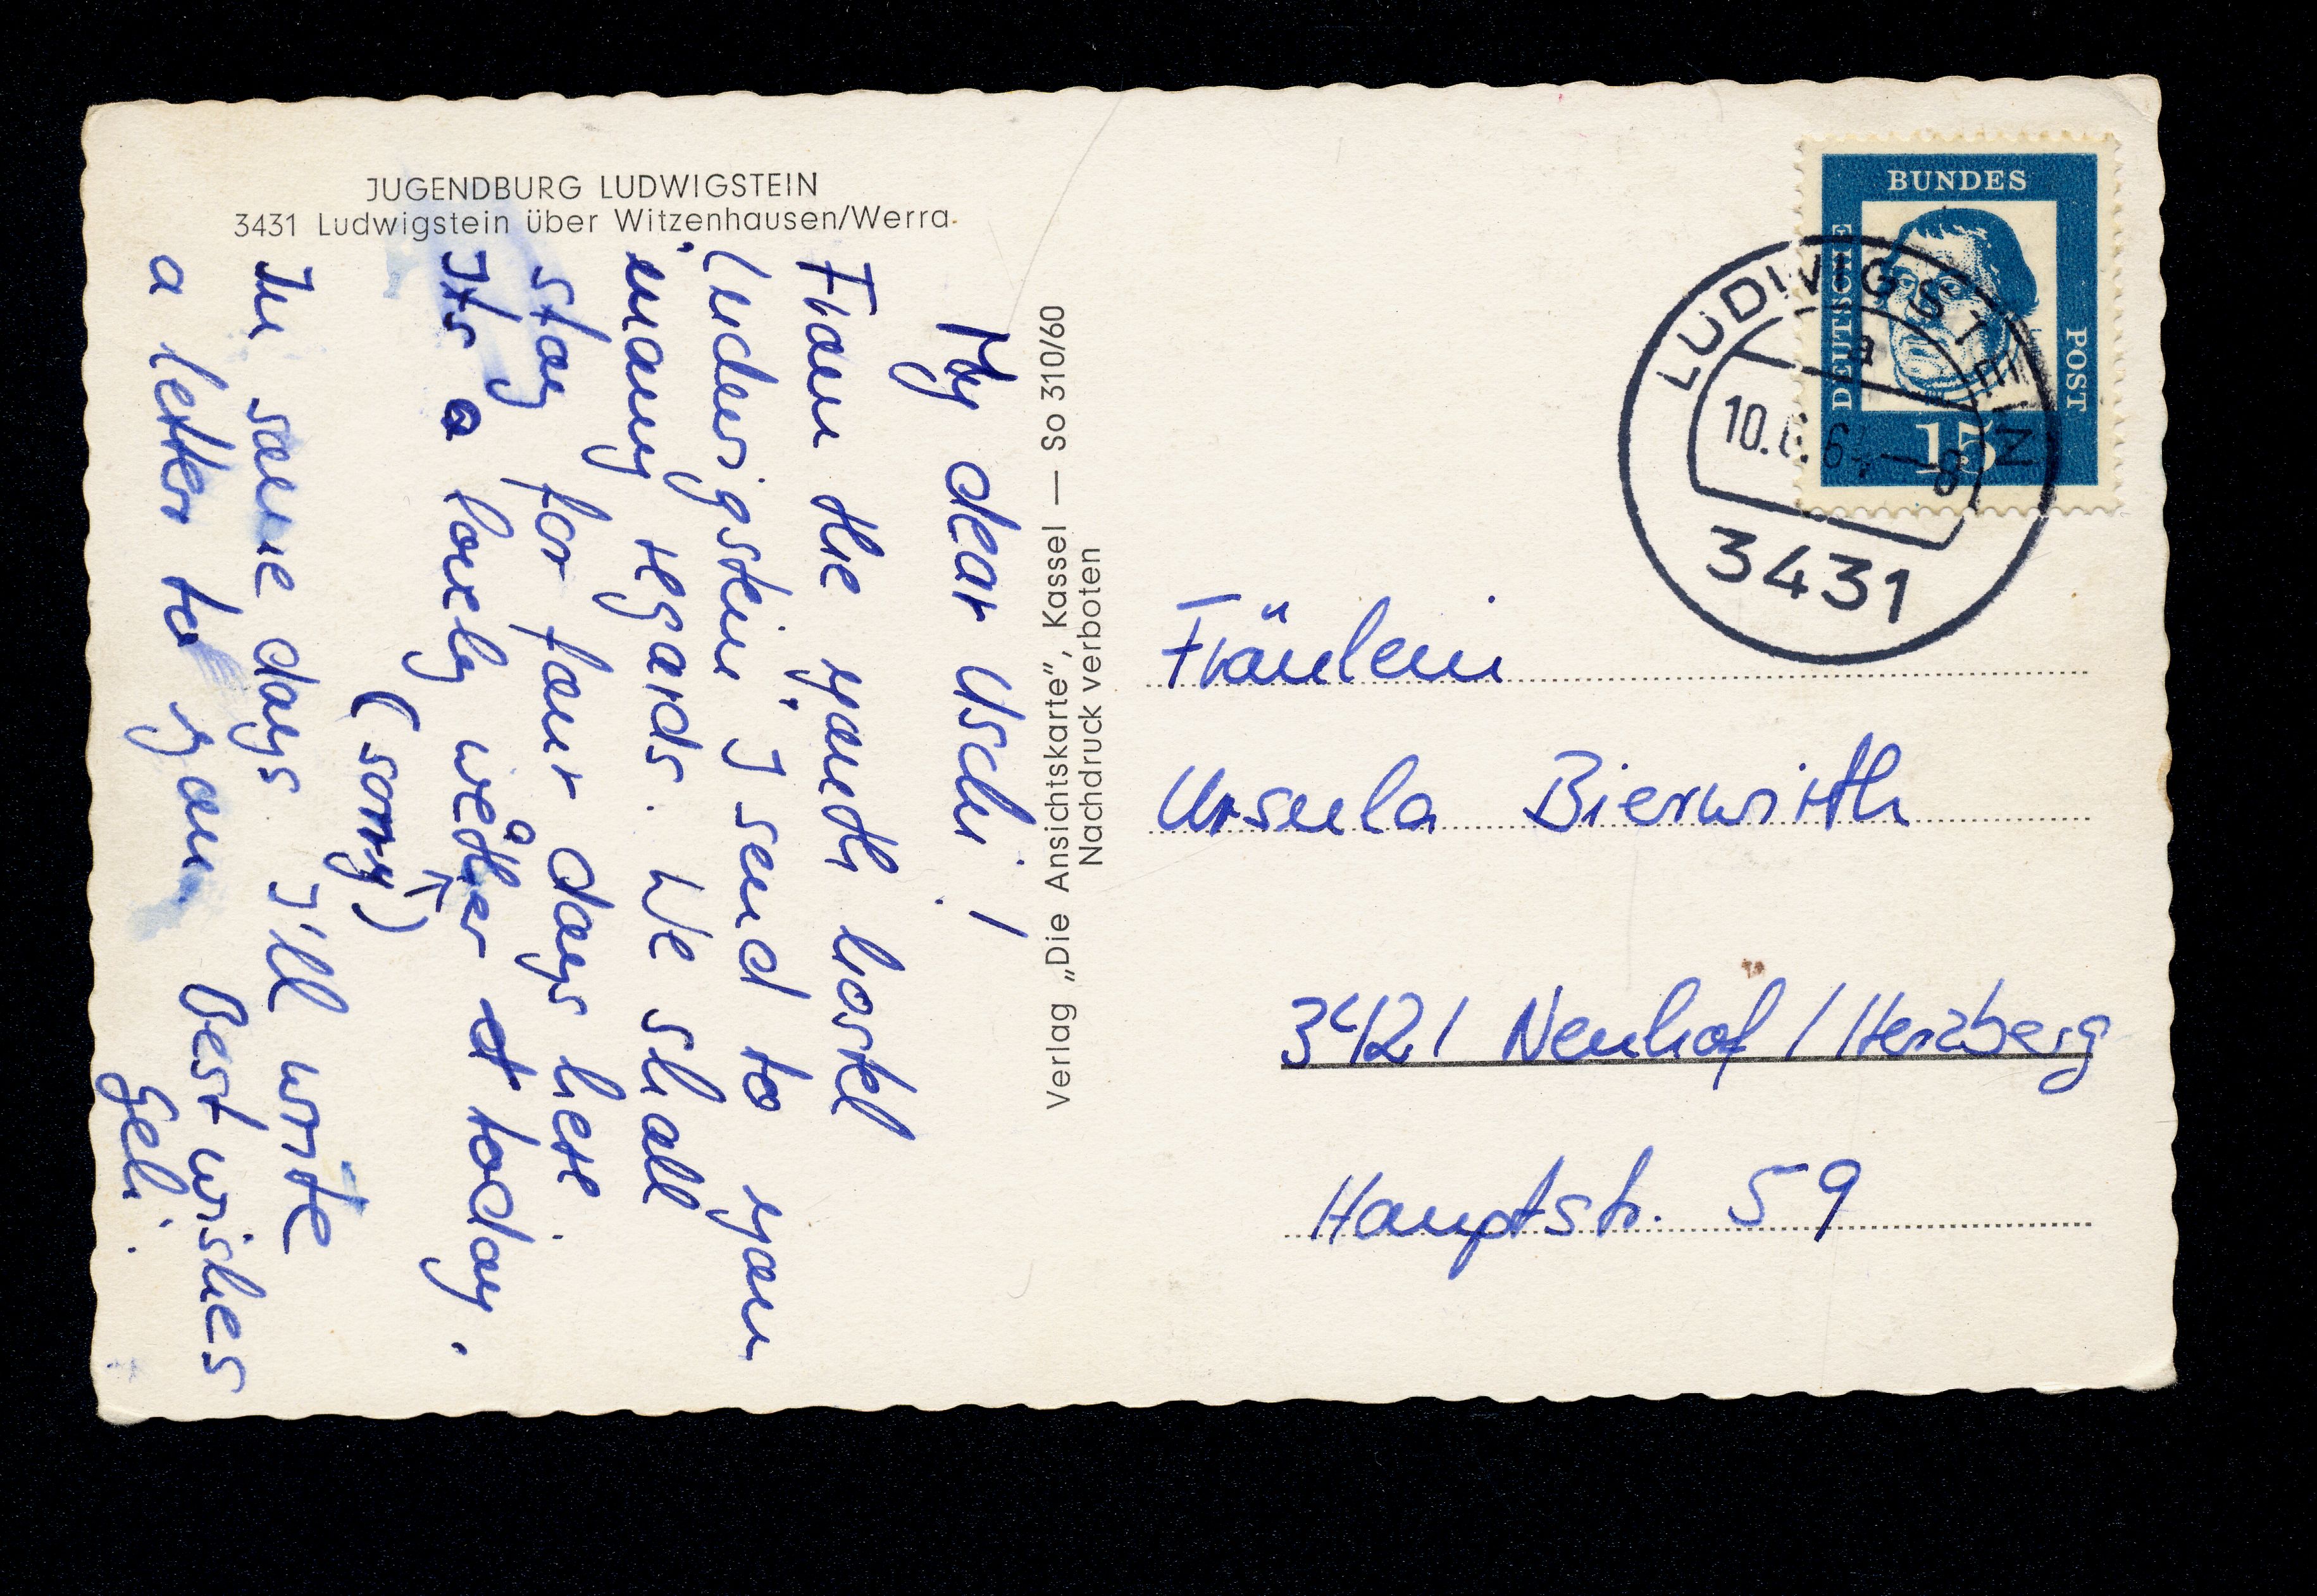 JUGENDBURG LUDWIGSTEIN
3431 Ludwigstein über Witzenhausen/Werra
My dear Uschi!
From the youth hostel
Ludwigstein I send to you
many regards. We shall
stay for four days here.
Its a lovely wether today.
a
(sorry)
In some days I'll write
a letter to you. Best wishes
Geli.
Verlag „Die Ansichtskarte”, Kassel — So 310/60
Nachdruck verboten
DEUTSCHE
BUNDES
POST
15
LUDWIGSTEIN
a
10.6.64-8
3431
Fräulein
Ursula Bierwirth
3421 Neuhof / Herzberg
Hauptstr. 59